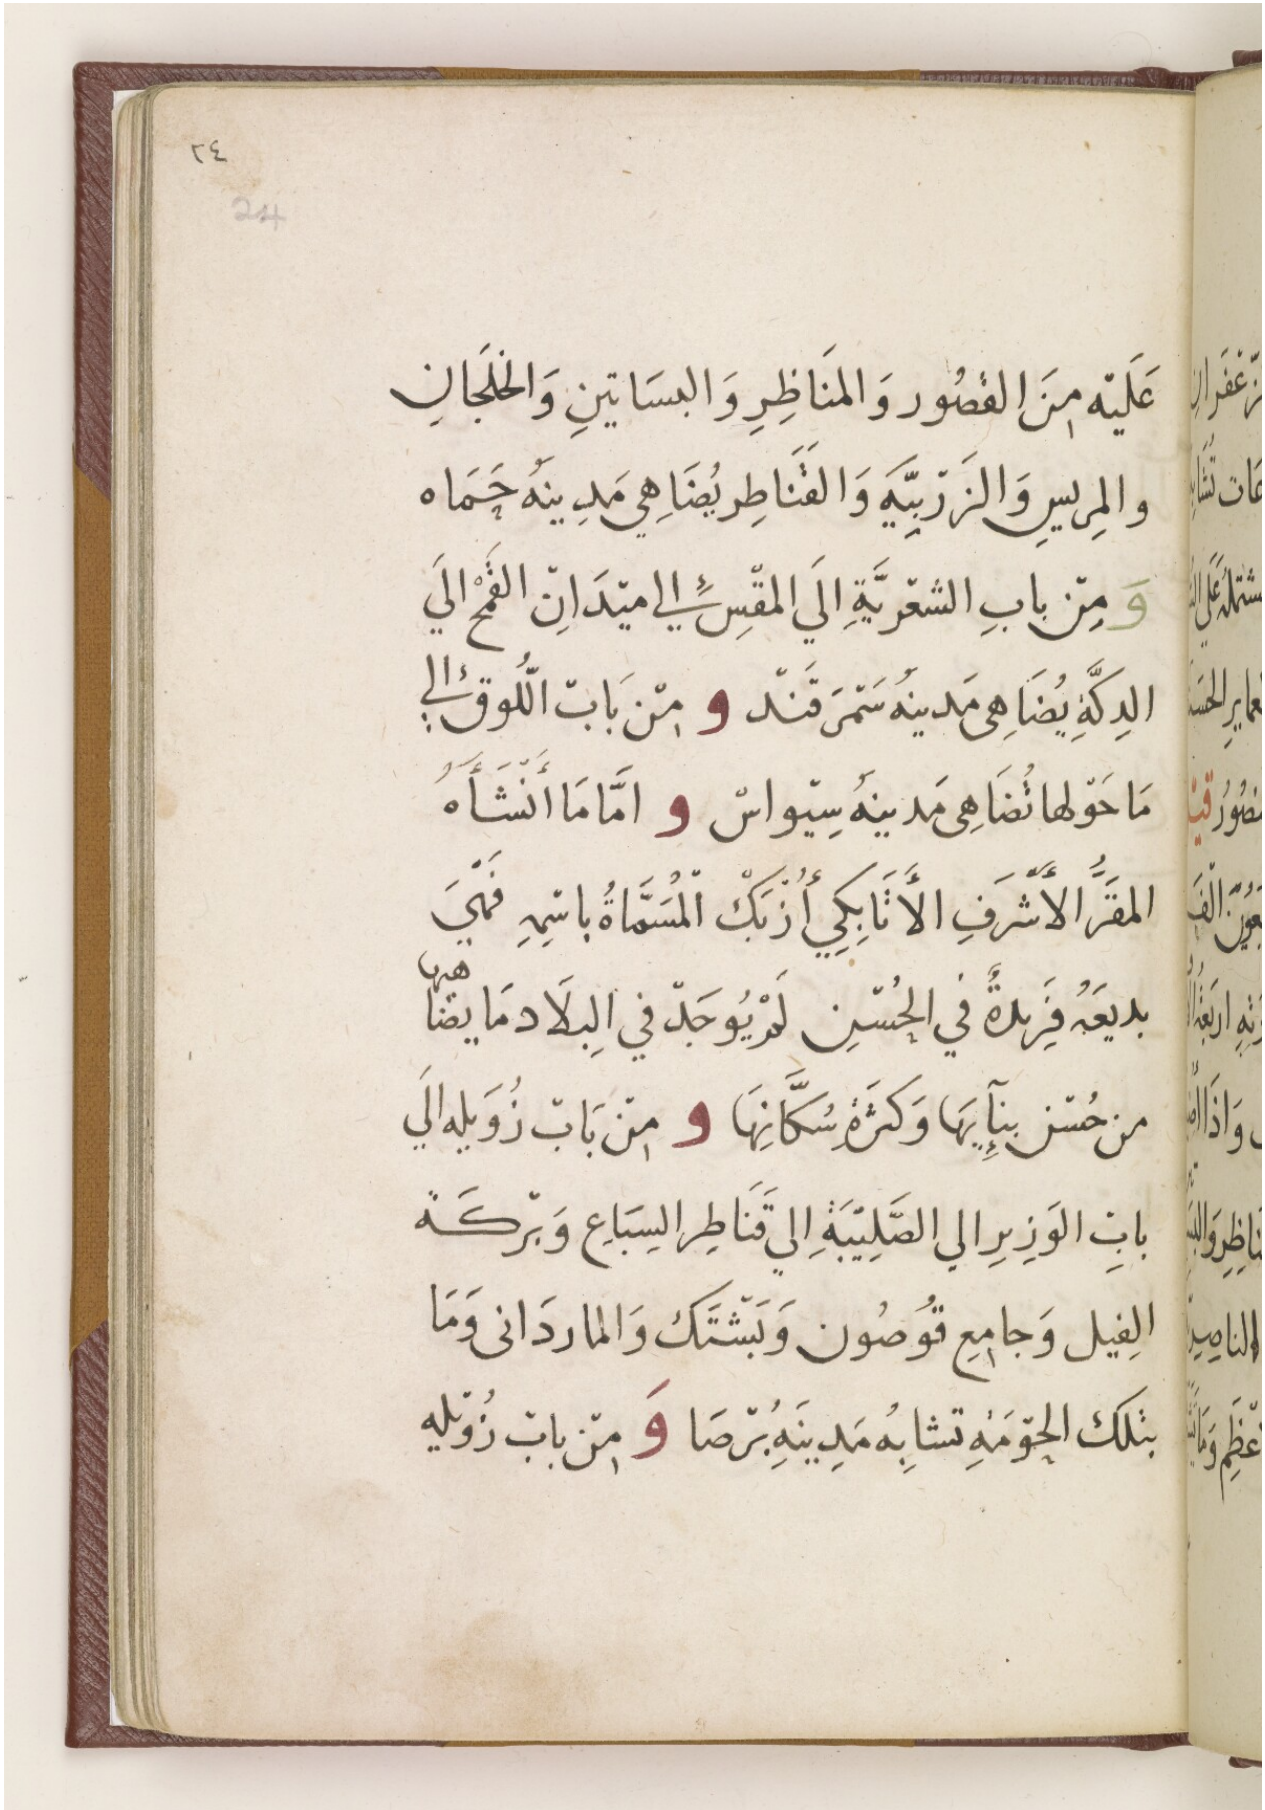 ٢٤
24
عَلَيْه مِنَ القصُور وَالمَناظِرِ وَالبسَاتينِ وَالخلَجانِ
والمِريسِ وَالزَرْبيَّه وَالقَنَاطِر يُضَاهِي مَدِينهُ حَمَاه
وَ مِنْ بابِ الشعْريَّةِ الَي المقْسِ الي ميْدَانِ القَمْح الَي
الدِكَّةِ يُضَاهِى مَدينهُ سَمْرَقَنْد و مِنْ بَابْ اللُّوق الي
مَا حَوْلها تُضَاهِى مَدينهُ سِيْواسْ و امَّا مَا أَنْشَأَهُ
المقَرَّ الأَشْرَفِ الأَتَابِكِي أُزْبَكْ الْمُسَمَّاةُ باسْمِهِ فَهْيَ
بديعَهُ فَرِيدةٌ في الحُسْنِ لَمْ يُوجَدْ في البِلَاد مَا يضَاهيها
من حُسْن بِنَآيِهَا وَكَثرَةِ سُكَّانِهَا و مِنْ بَابْ زُوَيله الَي
بابِ الوَزِيرِ الي الصَّلِيْبَةِ الي قَنَاطِر السِبَاعِ وَبرْكَة
الفِيل وَجامِع قوُصُون وَبَشْتَك وَالماردَانى وَمَا
بتلك الحوْمَهِ تشابِهُ مَدِينَهِ بُرْصَا وَ مِنْ بابْ زُوَيْله